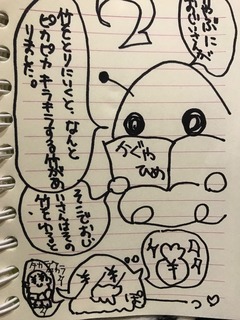 2
おじいさんが
やぶに
竹をとりにいくと、なんと
ピカピカキラキラする竹があ
りました。
かぐや
ひめ
そこでおじ
いさんはその
竹を
ぽ
っ♡